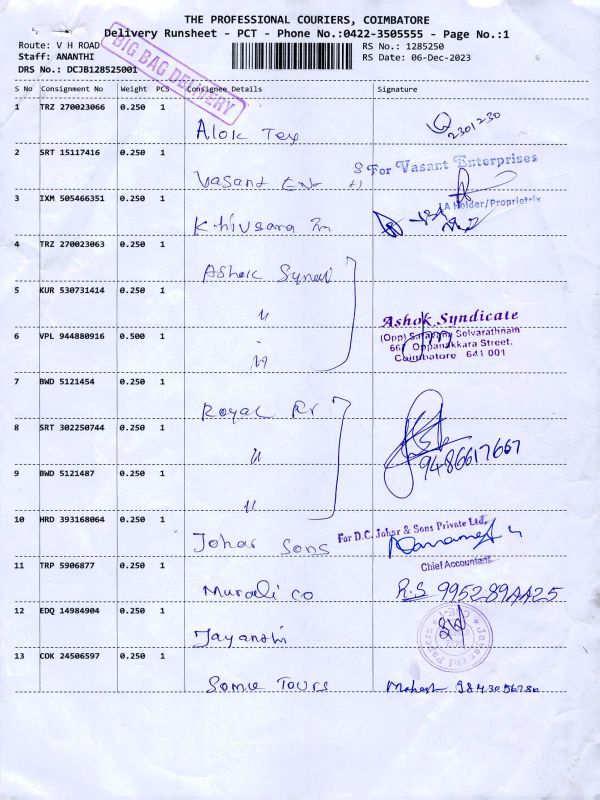 THE PROFESSIONAL COURIERS, COIMBATORE
Delivery Runsheet - PCT - Phone No.:0422-3505555 - Page No.:1
Route: V H ROAD
RS No.: 1285250
Staff: ANANTHI
RS Date: 06-Dec-2023
DRS No.: DCJB128525001
BIG BAG DELIVERY
S No Consignment No Weight PCS Consignee Details Signature
1 TRZ 270023066 0.250 1
Alok Tex
2301230
2 SRT 15117416 0.250 1
For Vasant Enterprises
Vasant Ent
3 IXM 505466351 0.250 1
PA Holder/Proprietrix
Khivsara
4 TRZ 270023063 0.250 1
Ashok Syndi
5 KUR 530731414 0.250 1
"
Ashok Syndicate
6 VPL 944880916 0.500 1
(Opp) Saravana Selvarathnam
66, Oppanakkara Street,
Coimbatore 641 001
"
7 BWD 5121454 0.250 1
Royal Pr
8 SRT 302250744 0.250 1
"
9486617667
9 BWD 5121487 0.250 1
"
10 HRD 393168064 0.250 1
For D.C. Johar & Sons Private Ltd.,
Johar Sons
Chief Accountant
11 TRP 5906877 0.250 1
Murali Co
R.S 9952894425
12 EDQ 14984904 0.250 1
Jayanthi
13 COK 24506597 0.250 1
Some Tours
Mahesh 9843056780